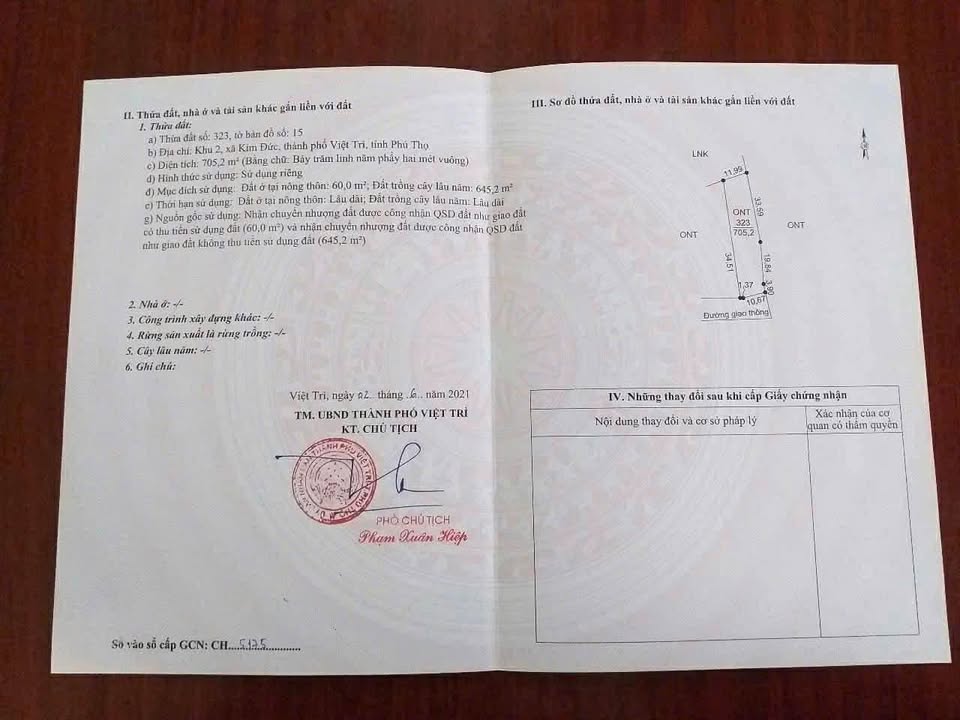 II. Thửa đất, nhà ở và tài sản khác gắn liền với đất
1. Thửa đất:
a) Thửa đất số: 323, tờ bản đồ số: 15
b) Địa chỉ: Khu 2, xã Kim Đức, thành phố Việt Trì, tỉnh Phú Thọ
c) Diện tích: 705,2 m² (Bằng chữ: Bảy trăm linh năm phẩy hai mét vuông)
d) Hình thức sử dụng: Sử dụng riêng
đ) Mục đích sử dụng: Đất ở tại nông thôn: 60,0 m²; Đất trồng cây lâu năm: 645,2 m²
e) Thời hạn sử dụng: Đất ở tại nông thôn: Lâu dài; Đất trồng cây lâu năm: Lâu dài
g) Nguồn gốc sử dụng: Nhận chuyển nhượng đất được công nhận QSD đất như giao đất
có thu tiền sử dụng đất (60,0 m²) và nhận chuyển nhượng đất được công nhận QSD đất
như giao đất không thu tiền sử dụng đất (645,2 m²)
2. Nhà ở: -/-
3. Công trình xây dựng khác: -/-
4. Rừng sản xuất là rừng trồng: -/-
5. Cây lâu năm: -/-
6. Ghi chú:
Việt Trì, ngày 02 tháng .6. năm 2021
TM. UBND THÀNH PHỐ VIỆT TRÌ
KT. CHỦ TỊCH
PHÓ CHỦ TỊCH
Phạm Xuân Hiệp
Số vào sổ cấp GCN: CH....5175............
III. Sơ đồ thửa đất, nhà ở và tài sản khác gắn liền với đất
LNK
11,99
33,59
ONT
323
705,2
ONT
ONT
34,51
19,84
1,37
3,90
10,67
Đường giao thông
IV. Những thay đổi sau khi cấp Giấy chứng nhận
Nội dung thay đổi và cơ sở pháp lý
Xác nhận của cơ
quan có thẩm quyền